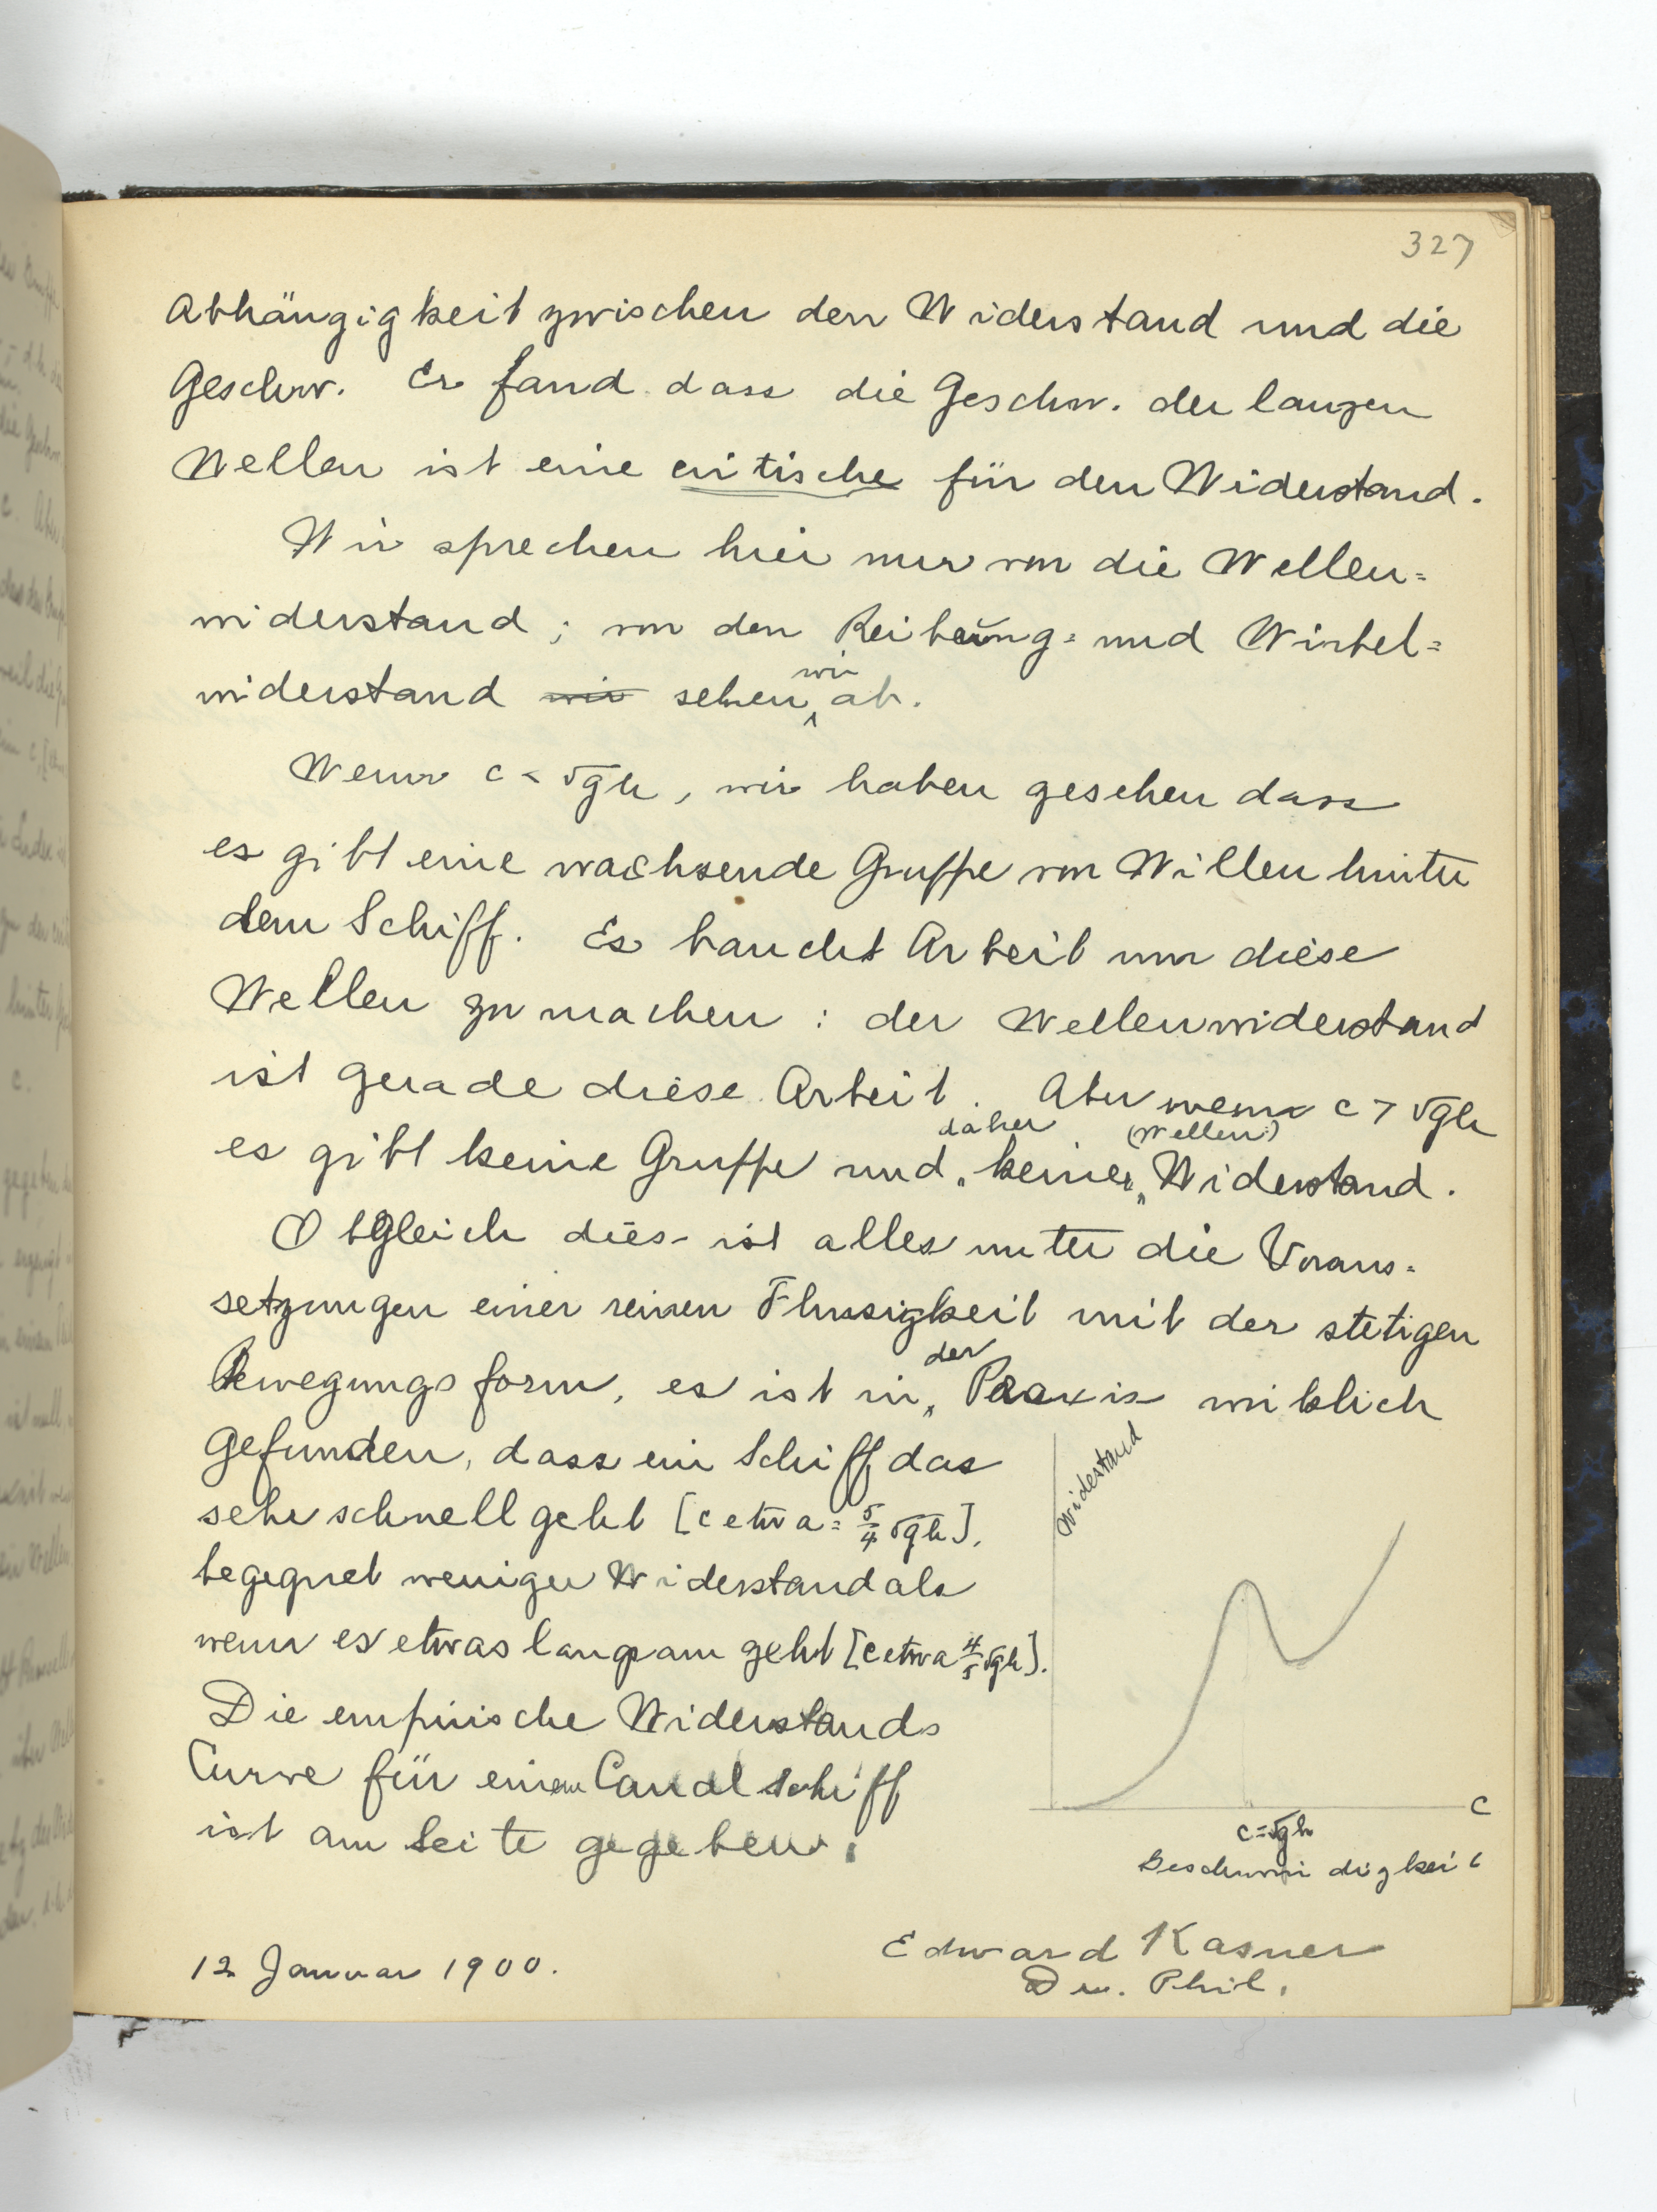 327
Abhängigkeit zwischen den Widerstand und die
Geschw. Er fand dass die Geschw. der langen
Wellen ist eine critische für den Widerstand.
Wir sprechen hier nur von die Wellen=
widerstand; von den Reibung= und Wirbel=
widerstand wir sehen wir ab.
Wenn c < √gh, wir haben gesehen dass
es gibt eine wachsende Gruppe von Willen hinter
dem Schiff. Es baucht Arbeit um diese
Wellen zu machen: der Wellenwiderstand
ist gerade diese Arbeit. Aber wenn c > √gh
es gibt keine Gruppe und daher keiner (Wellen) Widerstand.
Obgleich dies ist alles unter die Voraus=
setzungen einer reinen Flussigkeit mit der stetigen
Bewegungsform, es ist in der Praxis wirklich
gefunden, dass ein Schiff das
sehr schnell geht [c etwa = 5/4 √gh],
begegnet weniger Widerstand als
wenn es etwas langsam geht [c etwa 4/5 √gh].
Die empirische Widerstands
Curve für einem Canalschiff
ist am Seite gegeben.
Widestand
c
c=√gh
Geschwindigkeit
12 Januar 1900.
Edward Kasner
Dr. Phil.